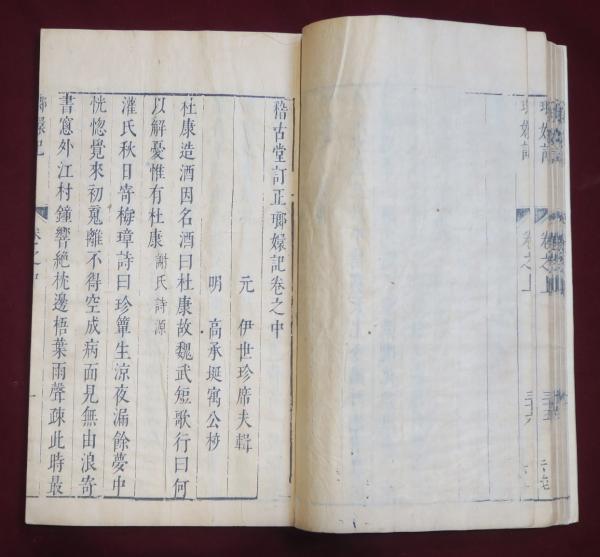 稽古堂訂正瑯嬛記卷之中
元 伊世珍席夫輯
明 高承埏寓公挍
杜康造酒因名酒曰杜康故魏武短歌行曰何
以解憂惟有杜康 謝氏詩源
灌氏秋日寄梅璋詩曰珍簟生涼夜漏餘夢中
恍惚覺來初䰟離不得空成病面見無由浪寄
書窓外江村鐘響絶枕邊梧葉雨聲疎此時最
瑯嬛記
卷之中
一
瑯嬛記
卷之上
瑯嬛記
卷之上